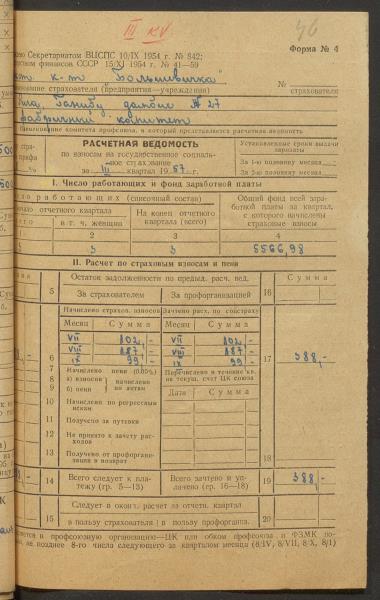 III кв
46
Секретариатом ВЦСПС 10/IX 1954 г. № 842;
финансов СССР 15/XI 1954 г. № 41—59
Форма № 4
к-т „Большевичка"
№
страхователя
(предприятия—учреждения)
Рига, № 27
фабричный комитет
комитета профсоюза, в который представляется расчетная ведомость
РАСЧЕТНАЯ ВЕДОМОСТЬ
по взносам на государственное социальное страхование
за III квартал 1957 г.
Установленные сроки выдачи зарплаты
За 1-ю половину месяца
За 2-ю половину месяца
I. Число работающих и фонд заработной платы
работающих (списочный состав)
Общий фонд всей заработной платы за квартал, с которого начислены страховые взносы
отчетного квартала
в т. ч. женщин
На конец отчетного квартала (всего)
2 3 4
3 3 5566,98
II. Расчет по страховым взносам и пени
Остаток задолженности по предыд. расч. вед.
Сумма
5 За страхователем За профорганизацией 16
Начислено страхов. взносов
Зачтено расх. по соцстраху
Месяц Сумма Месяц Сумма
VII 102,- VII 102,-
VIII 187,- VIII 187,-
6 IX 99,- IX 99,- 17 388,-
7 Начислено пени (0,05%)
Перечислено в течение кв. на текущ. счет ЦК союза
8 а) взносов
9 б) пени
начислено по актам
Дата Сумма
10 Начислено по регрессным искам
11 Получено за путевки
12 Не принято к зачету расходов
13 Получено от профорганизации в возврат
18
14 Всего следует к платежу (гр. 5—13)
Всего зачтено и уплачено (гр. 16—18) 19 388,-
Следует в оконч. расчет за отчетн. квартал
15 в пользу страхователя в пользу профорганиз. 20
в профсоюзную организацию—ЦК или обком профсоюза и ФЗМК
не позднее 8-го числа следующего за кварталом месяца (8/IV, 8/VII, 8/X, 8/I)